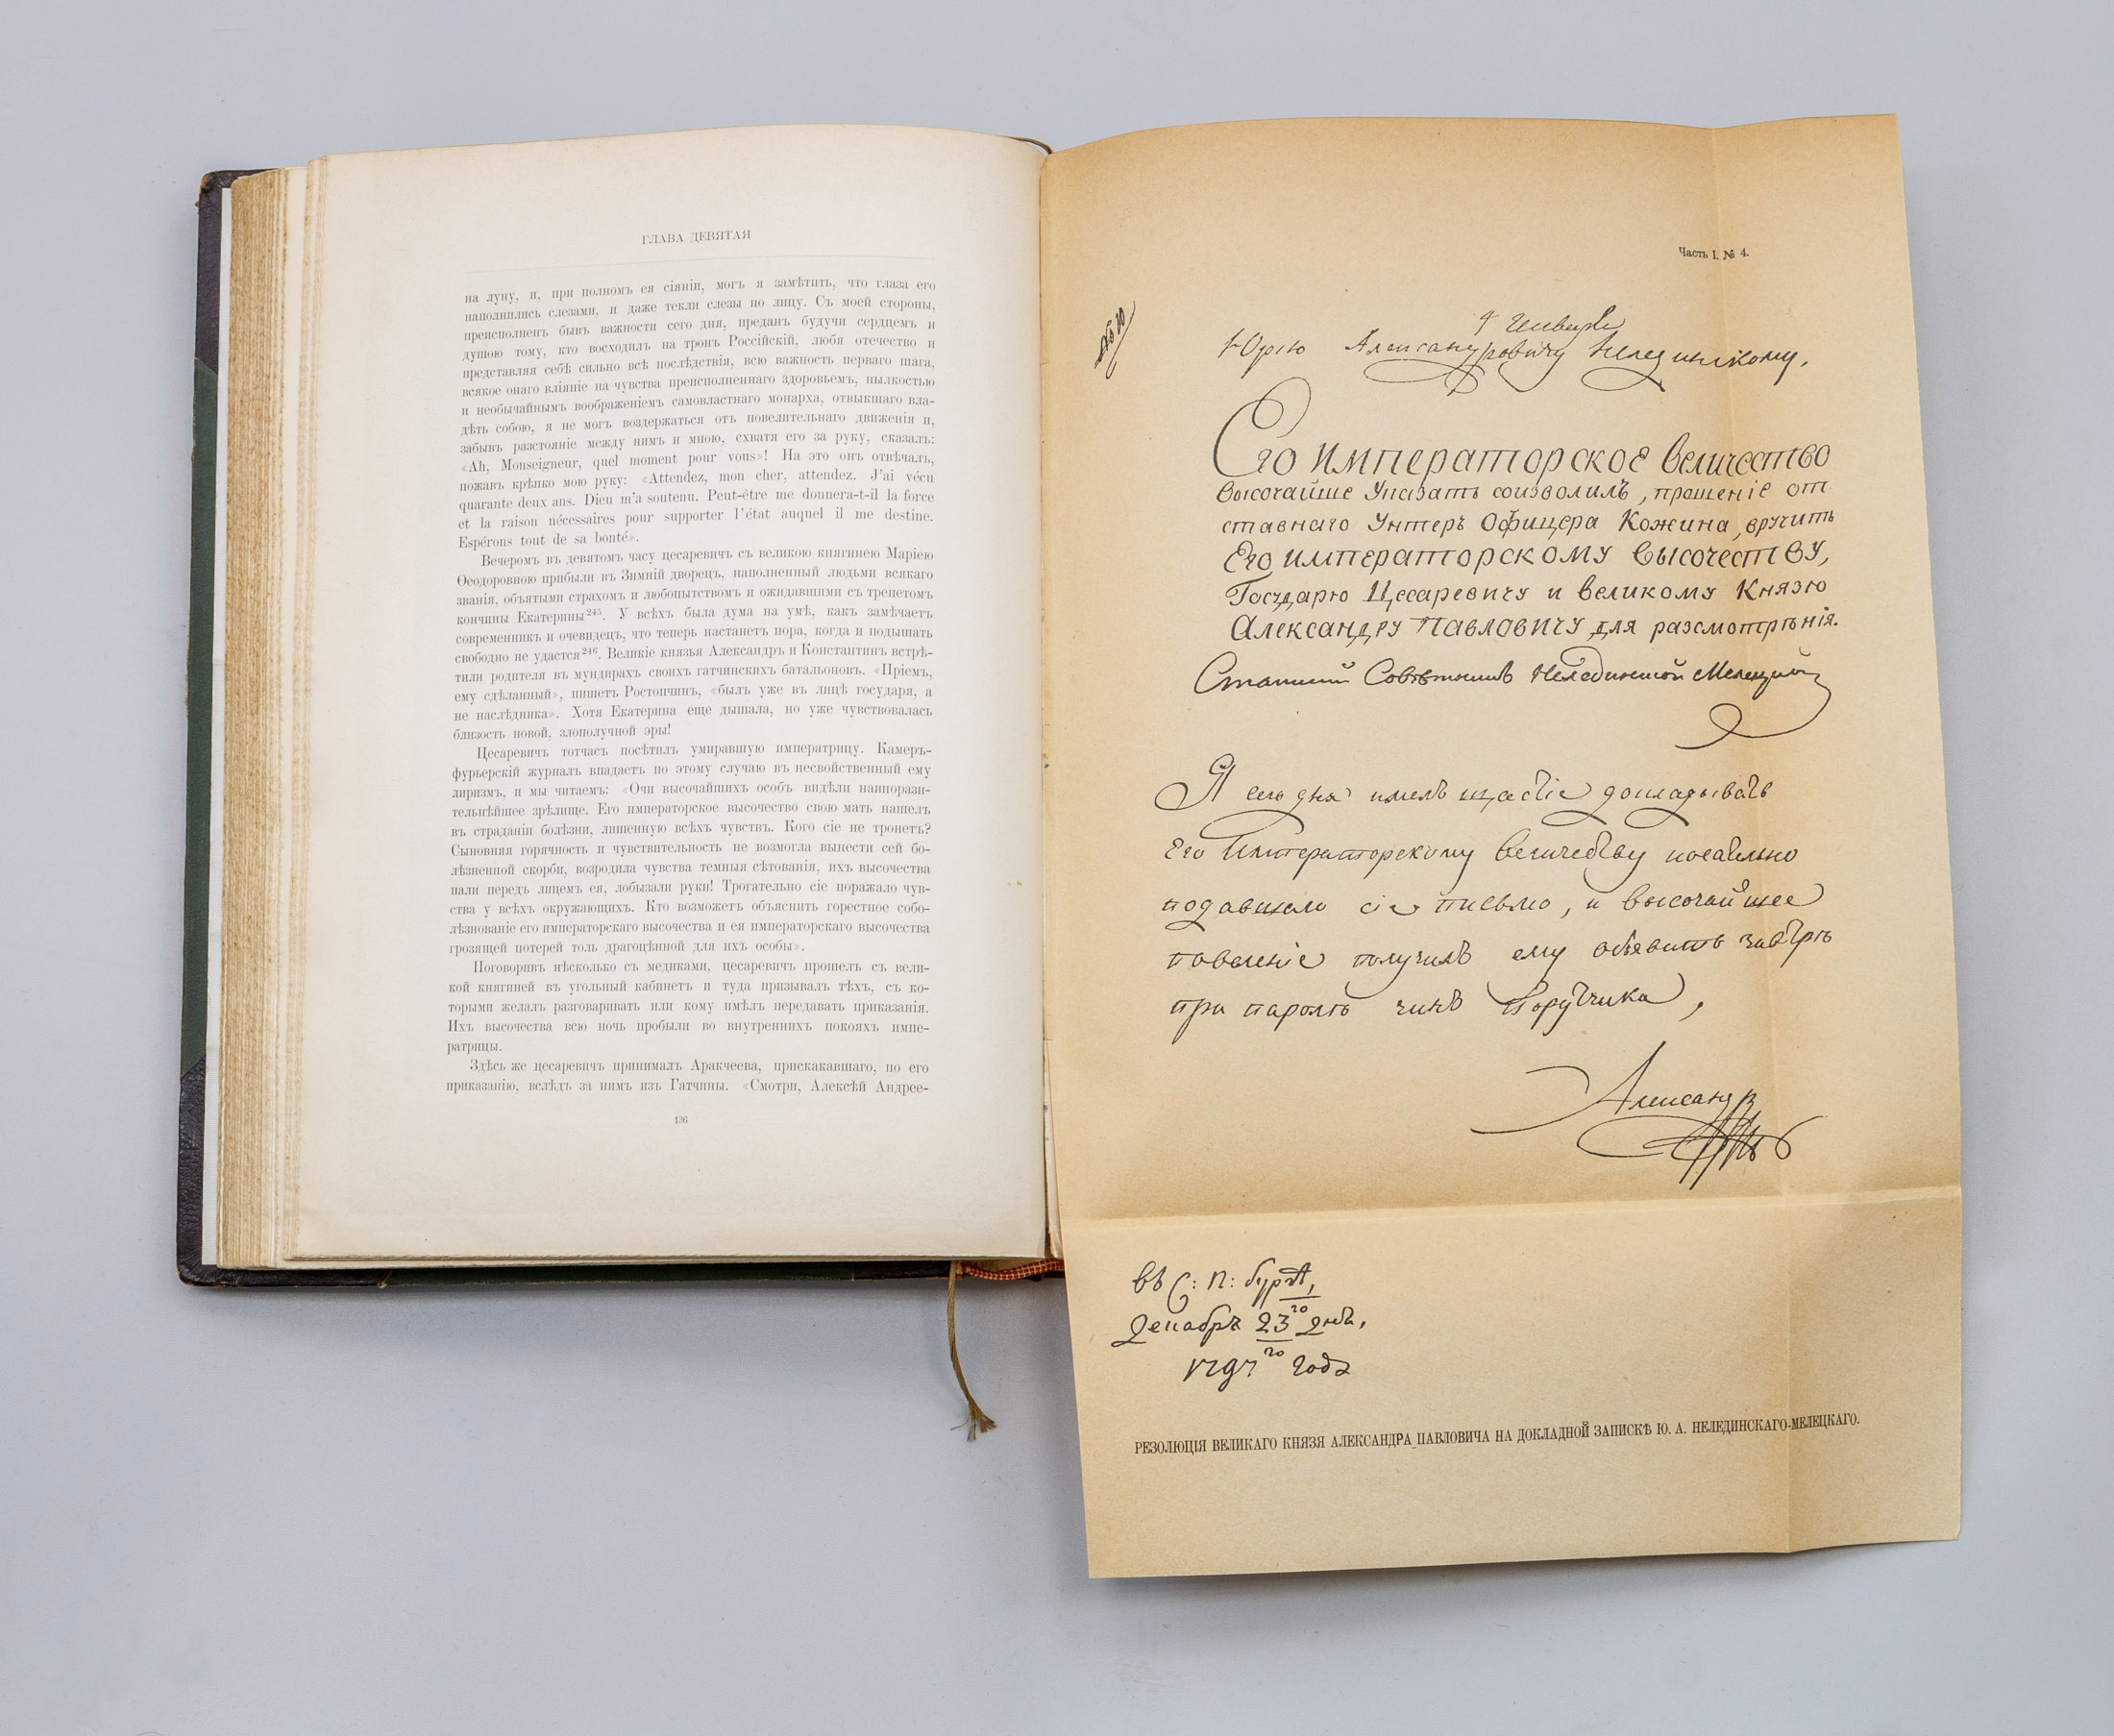 ГЛАВА ДЕВЯТАЯ
на луну, и, при полномъ ея сіяніи, могъ я замѣтить, что глаза его
наполнились слезами, и даже текли слезы по лицу. Съ моей стороны,
преисполненъ бывъ важности сего дня, преданъ будучи сердцемъ и
душою тому, кто восходилъ на тронъ Россійскій, любя отечество и
представляя себѣ сильно всѣ послѣдствія, всю важность перваго шага,
всякое онаго вліяніе на чувства преисполненнаго здоровьемъ, пылкостью
и необычайнымъ воображеніемъ самовластнаго монарха, отвыкшаго вла-
дѣть собою, я не могъ воздержаться отъ повелительнаго движенія и,
забывъ разстояніе между нимъ и мною, схватя его за руку, сказалъ:
«Ah, Monseigneur, quel moment pour vous»! На это онъ отвѣчалъ,
пожавъ крѣпко мою руку: «Attendez, mon cher, attendez. J'ai vécu
quarante deux ans. Dieu m'a soutenu. Peut-être me donnera-t-il la force
et la raison nécessaires pour supporter l'état auquel il me destine.
Espérons tout de sa bonté».
Вечеромъ въ девятомъ часу цесаревичъ съ великою княгинею Маріею
Ѳеодоровною прибыли въ Зимній дворецъ, наполненный людьми всякаго
званія, объятыми страхомъ и любопытствомъ и ожидавшими съ трепетомъ
кончины Екатерины²⁴⁵. У всѣхъ была дума на умѣ, какъ замѣчаетъ
современникъ и очевидецъ, что теперь настанетъ пора, когда и подышать
свободно не удастся²⁴⁶. Великіе князья Александръ и Константинъ встрѣ-
тили родителя въ мундирахъ своихъ гатчинскихъ батальоновъ. «Пріемъ,
ему сдѣланный», пишетъ Ростопчинъ, «былъ уже въ лицѣ государя, а
не наслѣдника». Хотя Екатерина еще дышала, но уже чувствовалась
близость новой, злополучной эры!
Цесаревичъ тотчасъ посѣтилъ умиравшую императрицу. Камеръ-
фурьерскій журналъ впадаетъ по этому случаю въ несвойственный ему
лиризмъ, и мы читаемъ: «Очи высочайшихъ особъ видѣли наипорази-
тельнѣйшее зрѣлище. Его императорское высочество свою мать нашелъ
въ страданіи болѣзни, лишенную всѣхъ чувствъ. Кого сіе не тронетъ?
Сыновняя горячность и чувствительность не возмогла вынести сей бо-
лѣзненной скорби, возродила чувства темныя сѣтованія, ихъ высочества
пали передъ лицемъ ея, лобызали руки! Трогательно сіе поражало чув-
ства у всѣхъ окружающихъ. Кто возможетъ объяснить горестное собо-
лѣзнованіе его императорскаго высочества и ея императорскаго высочества
грозящей потерей толь драгоцѣнной для ихъ особы».
Поговоривъ нѣсколько съ медиками, цесаревичъ прошелъ съ вели-
кой княгиней въ угольный кабинетъ и туда призывалъ тѣхъ, съ ко-
торыми желалъ разговаривать или кому имѣлъ передавать приказанія.
Ихъ высочества всю ночь пробыли во внутреннихъ покояхъ импе-
ратрицы.
Здѣсь же цесаревичъ принималъ Аракчеева, прискакавшаго, по его
приказанію, вслѣдъ за нимъ изъ Гатчины. «Смотри, Алексѣй Андрее-
136
Часть I. № 4.
Юрію Александровичу Нелединскому.
Его Императорское величество
высочайше указать соизволилъ, прошеніе от-
ставнаго Унтеръ Офицера Кожина, вручить
Его императорскому высочеству,
Государю Цесаревичу и великому Князю
Александру Павловичу для разсмотрѣнія.
Статскій Совѣтникъ Нелединской Мелецкій
Я сего дня имелъ щастіе докладывать
Его Императорскому величеству
подавшемъ сіе письмо, и высочайшее
повеленіе получилъ ему объявить завтрѣ
при паролѣ чинъ Порутчика,
Александръ
въ С: П: бургѣ,
декабря 23го дня,
1797го года
РЕЗОЛЮЦІЯ ВЕЛИКАГО КНЯЗЯ АЛЕКСАНДРА ПАВЛОВИЧА НА ДОКЛАДНОЙ ЗАПИСКѢ Ю. А. НЕЛЕДИНСКАГО-МЕЛЕЦКАГО.